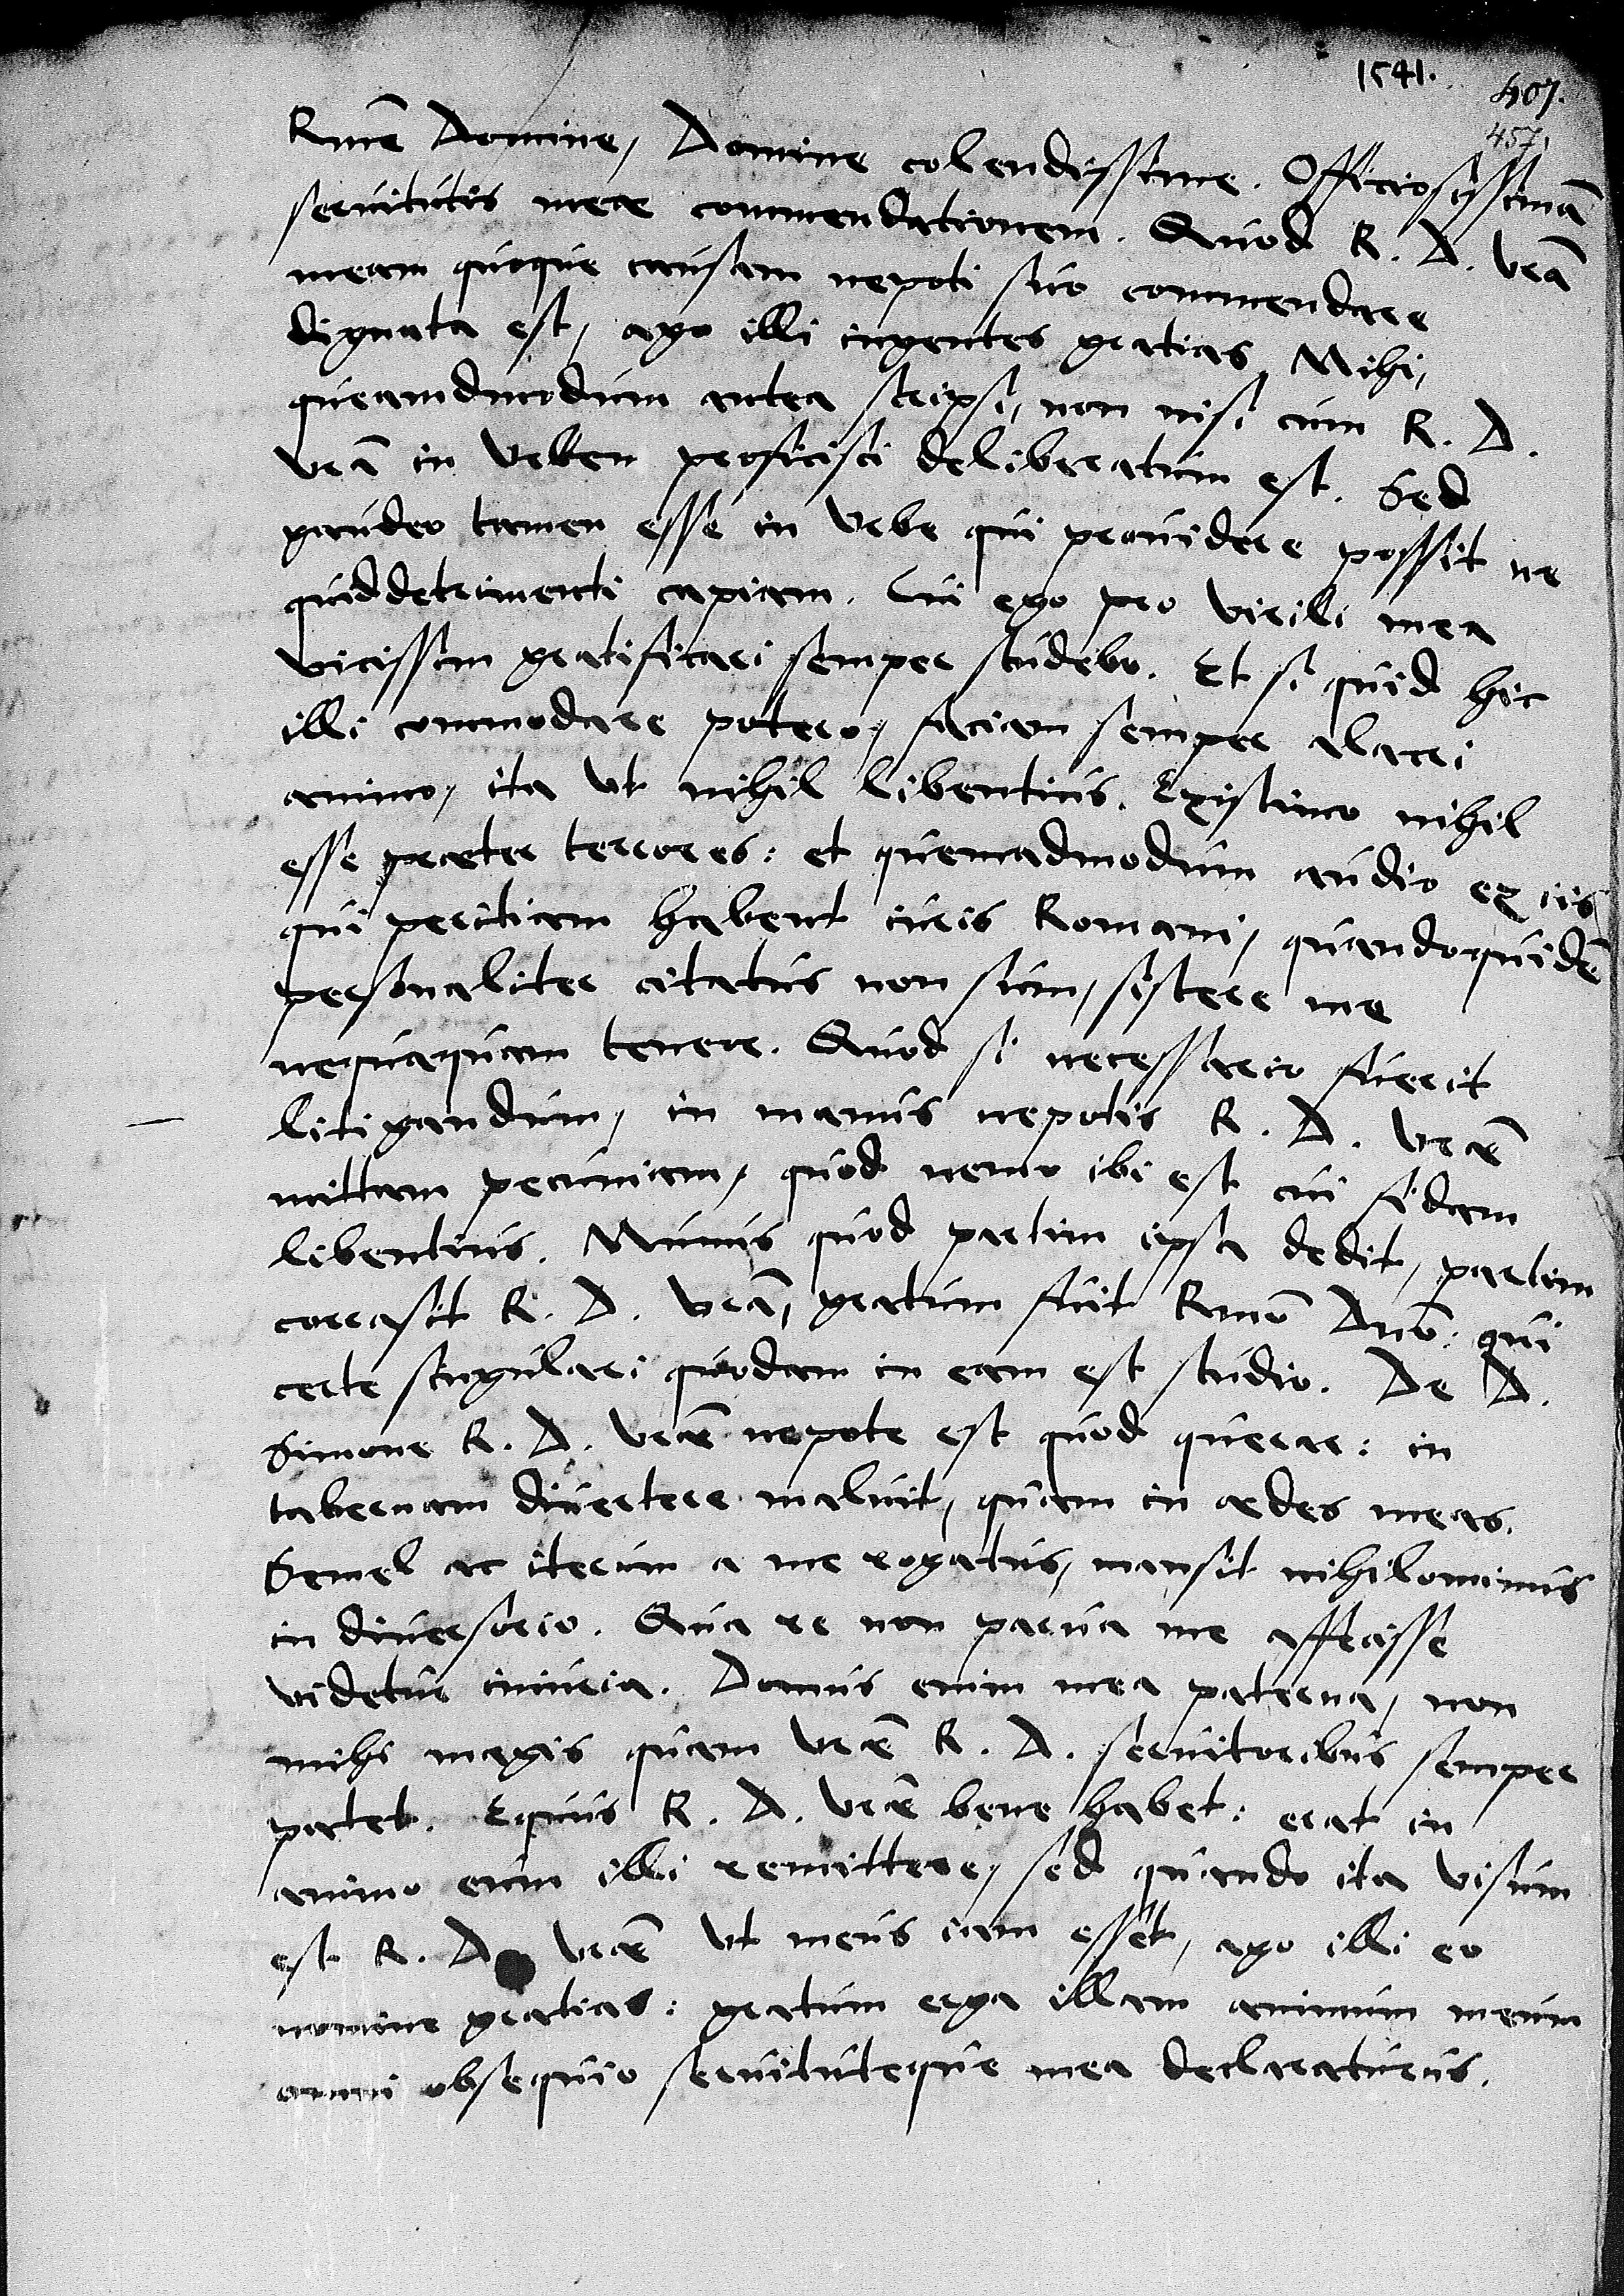 1541.
407.
457.
Rme Domine, Domine colendissime. Officiosissimā
seruitutis meae commendationem. Quod R. D. vrā
meam quoque causam nepoti suo commendare
dignata est, ago illi ingentes gratias. Mihi,
queamdmodum antea scripsi, non nisi cum R. D.
vrā in vrbem proficisci deliberatum est. Sed
gaudeo tamen esse in vrbe qui prouidere possit ne
quid detrimenti capiam. Cui ego pro virili mea
vicissim gratificari semper studebo. Et si quid hic
illi commodare potero, faciam semper alacri
animo, ita vt nihil libentius. Existimo nihil
esse praeter terrores: et quemadmodum audio ex iis,
qui peritiam habent iuris Romani, quandoquidē
personaliter citatus non sum, sistere me
nequaquam tenere. Quod si necessario fuerit
litigandum, in manus nepotis R. D. vrae
mittam pecuniam, quod nemo ibi est cui fidam
libentius. Munus quod partim ipsa dedit, partim
corrasit R. D. vrā, gratum fuit Rmo Dno: qui
certe singulari quodam in eam est studio. De D.
Simone R. D. vrae nepote est quod querar: in
tabernam diuertere maluit, quam in aedes meas.
Semel ac iterum a me rogatus, mansit nihilominus
in diuersorio. Qua re non parua me affecisse
videtur iniuria. Domus enim mea paterna, non
mihi magis quam vrae R. D. seruitoribus semper
patet. Equus R. D. vrae bene habet: erat in
animo eum illi remittere, sed quando ita visum
est R. D. vrae vt meus iam esset, ago illi eo
nomine gratias: gratum erga illam animum meum
omni obsequio seruituteque mea declaraturus.